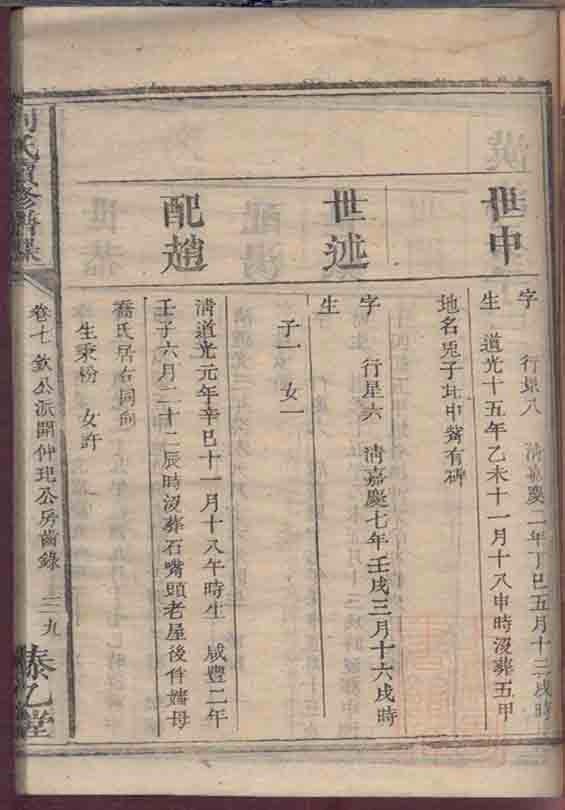 世申
字 行星八 清嘉慶二年丁巳五月十三戌時
生 道光十五年乙未十一月十八申時沒葬五甲
地名兎子坵申嶅有碑
世述
字 行星六 清嘉慶七年壬戌三月十六戌時
生
子一 女一
配趙
清道光元年辛巳十一月十八午時生 咸豐二年
壬子六月二十二辰時沒葬石嘴頭老屋後伴嫡母
喬氏居右同向
生秉份 女許
氏續修譜牒
卷七欽公派開仲玘公房齒錄 三九
忆堂